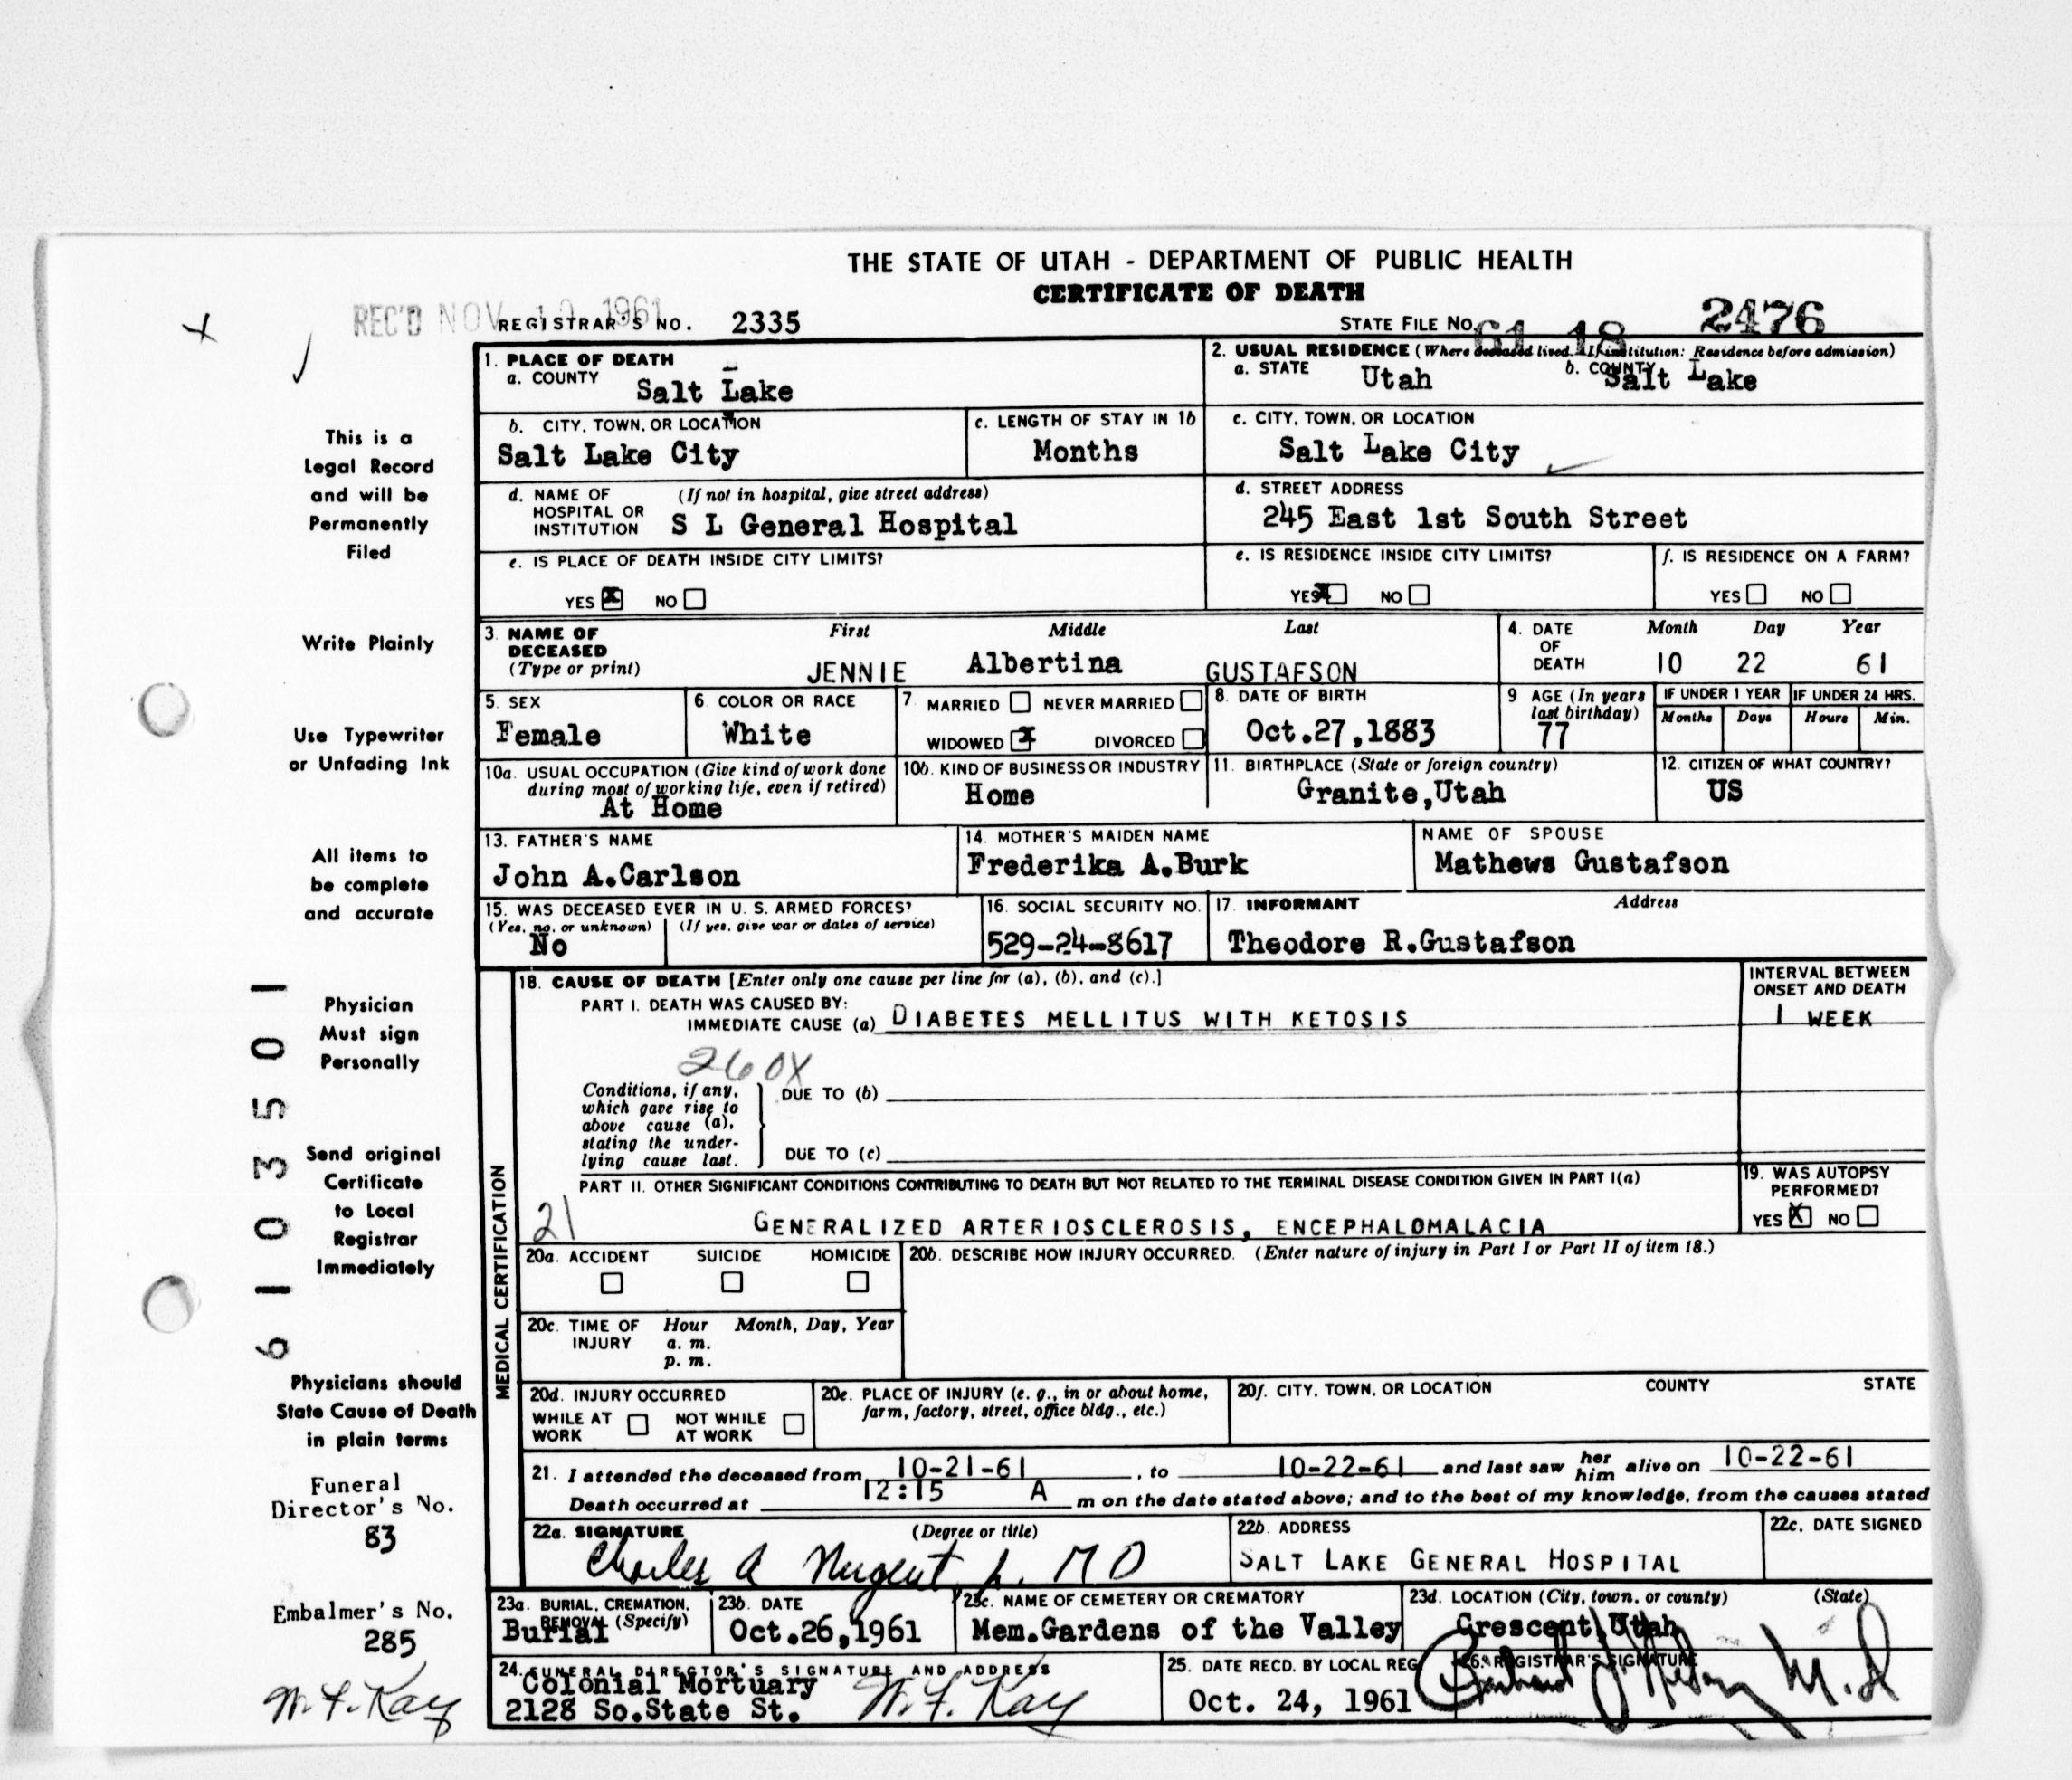 THE STATE OF UTAH - DEPARTMENT OF PUBLIC HEALTH
CERTIFICATE OF DEATH
REC'D NOV 1961
REGISTRAR'S NO. 2335
STATE FILE NO. 61 18 2476
1. PLACE OF DEATH
a. COUNTY Salt Lake
2. USUAL RESIDENCE (Where deceased lived. If institution: Residence before admission)
a. STATE Utah b. COUNTY Salt Lake
b. CITY, TOWN, OR LOCATION Salt Lake City
c. LENGTH OF STAY IN 1b Months
c. CITY, TOWN, OR LOCATION Salt Lake City
d. NAME OF HOSPITAL OR INSTITUTION (If not in hospital, give street address) S L General Hospital
d. STREET ADDRESS 245 East 1st South Street
e. IS PLACE OF DEATH INSIDE CITY LIMITS?
YES X NO
e. IS RESIDENCE INSIDE CITY LIMITS?
YES X NO
f. IS RESIDENCE ON A FARM?
YES NO
3. NAME OF DECEASED (Type or print)
First Middle Last
JENNIE Albertina GUSTAFSON
4. DATE OF DEATH
Month Day Year
10 22 61
5. SEX Female
6. COLOR OR RACE White
7 MARRIED NEVER MARRIED
WIDOWED X DIVORCED
8. DATE OF BIRTH Oct.27,1883
9 AGE (In years last birthday) 77
IF UNDER 1 YEAR Months Days
IF UNDER 24 HRS. Hours Min.
10a. USUAL OCCUPATION (Give kind of work done during most of working life, even if retired) At Home
10b. KIND OF BUSINESS OR INDUSTRY Home
11. BIRTHPLACE (State or foreign country) Granite,Utah
12. CITIZEN OF WHAT COUNTRY? US
13. FATHER'S NAME John A.Carlson
14. MOTHER'S MAIDEN NAME Frederika A.Burk
NAME OF SPOUSE Mathews Gustafson
15. WAS DECEASED EVER IN U. S. ARMED FORCES?
(Yes, no, or unknown) (If yes, give war or dates of service)
No
16. SOCIAL SECURITY NO. 529-24-8617
17. INFORMANT Address
Theodore R.Gustafson
MEDICAL CERTIFICATION
18. CAUSE OF DEATH [Enter only one cause per line for (a), (b), and (c).]
INTERVAL BETWEEN ONSET AND DEATH
PART I. DEATH WAS CAUSED BY:
IMMEDIATE CAUSE (a) DIABETES MELLITUS WITH KETOSIS 1 WEEK
260X
Conditions, if any, which gave rise to above cause (a), stating the under-lying cause last.
DUE TO (b)
DUE TO (c)
PART II. OTHER SIGNIFICANT CONDITIONS CONTRIBUTING TO DEATH BUT NOT RELATED TO THE TERMINAL DISEASE CONDITION GIVEN IN PART I(a)
21 GENERALIZED ARTERIOSCLEROSIS, ENCEPHALOMALACIA
19. WAS AUTOPSY PERFORMED?
YES X NO
20a. ACCIDENT SUICIDE HOMICIDE
20b. DESCRIBE HOW INJURY OCCURRED. (Enter nature of injury in Part I or Part II of item 18.)
20c. TIME OF INJURY Hour Month, Day, Year
a. m.
p. m.
20d. INJURY OCCURRED
WHILE AT WORK NOT WHILE AT WORK
20e. PLACE OF INJURY (e. g., in or about home, farm, factory, street, office bldg., etc.)
20f. CITY, TOWN, OR LOCATION COUNTY STATE
21. I attended the deceased from 10-21-61, to 10-22-61 and last saw her him alive on 10-22-61
Death occurred at 12:15 A m on the date stated above; and to the best of my knowledge, from the causes stated
22a. SIGNATURE (Degree or title)
Charles A Nugent Jr. MD
22b. ADDRESS SALT LAKE GENERAL HOSPITAL
22c. DATE SIGNED
23a. BURIAL, CREMATION, REMOVAL (Specify) Burial
23b. DATE Oct.26,1961
23c. NAME OF CEMETERY OR CREMATORY Mem.Gardens of the Valley
23d. LOCATION (City, town, or county) (State)
Crescent Utah
24. FUNERAL DIRECTOR'S SIGNATURE AND ADDRESS
Colonial Mortuary
2128 So.State St. W. F. Kay
25. DATE RECD. BY LOCAL REG
Oct. 24, 1961
26. REGISTRAR'S SIGNATURE
M.D
This is a
Legal Record
and will be
Permanently
Filed
Write Plainly
Use Typewriter
or Unfading Ink
All items to
be complete
and accurate
Physician
Must sign
Personally
Send original
Certificate
to Local
Registrar
Immediately
Physicians should
State Cause of Death
in plain terms
Funeral
Director's No.
83
Embalmer's No.
285
W. F. Kay
6103501